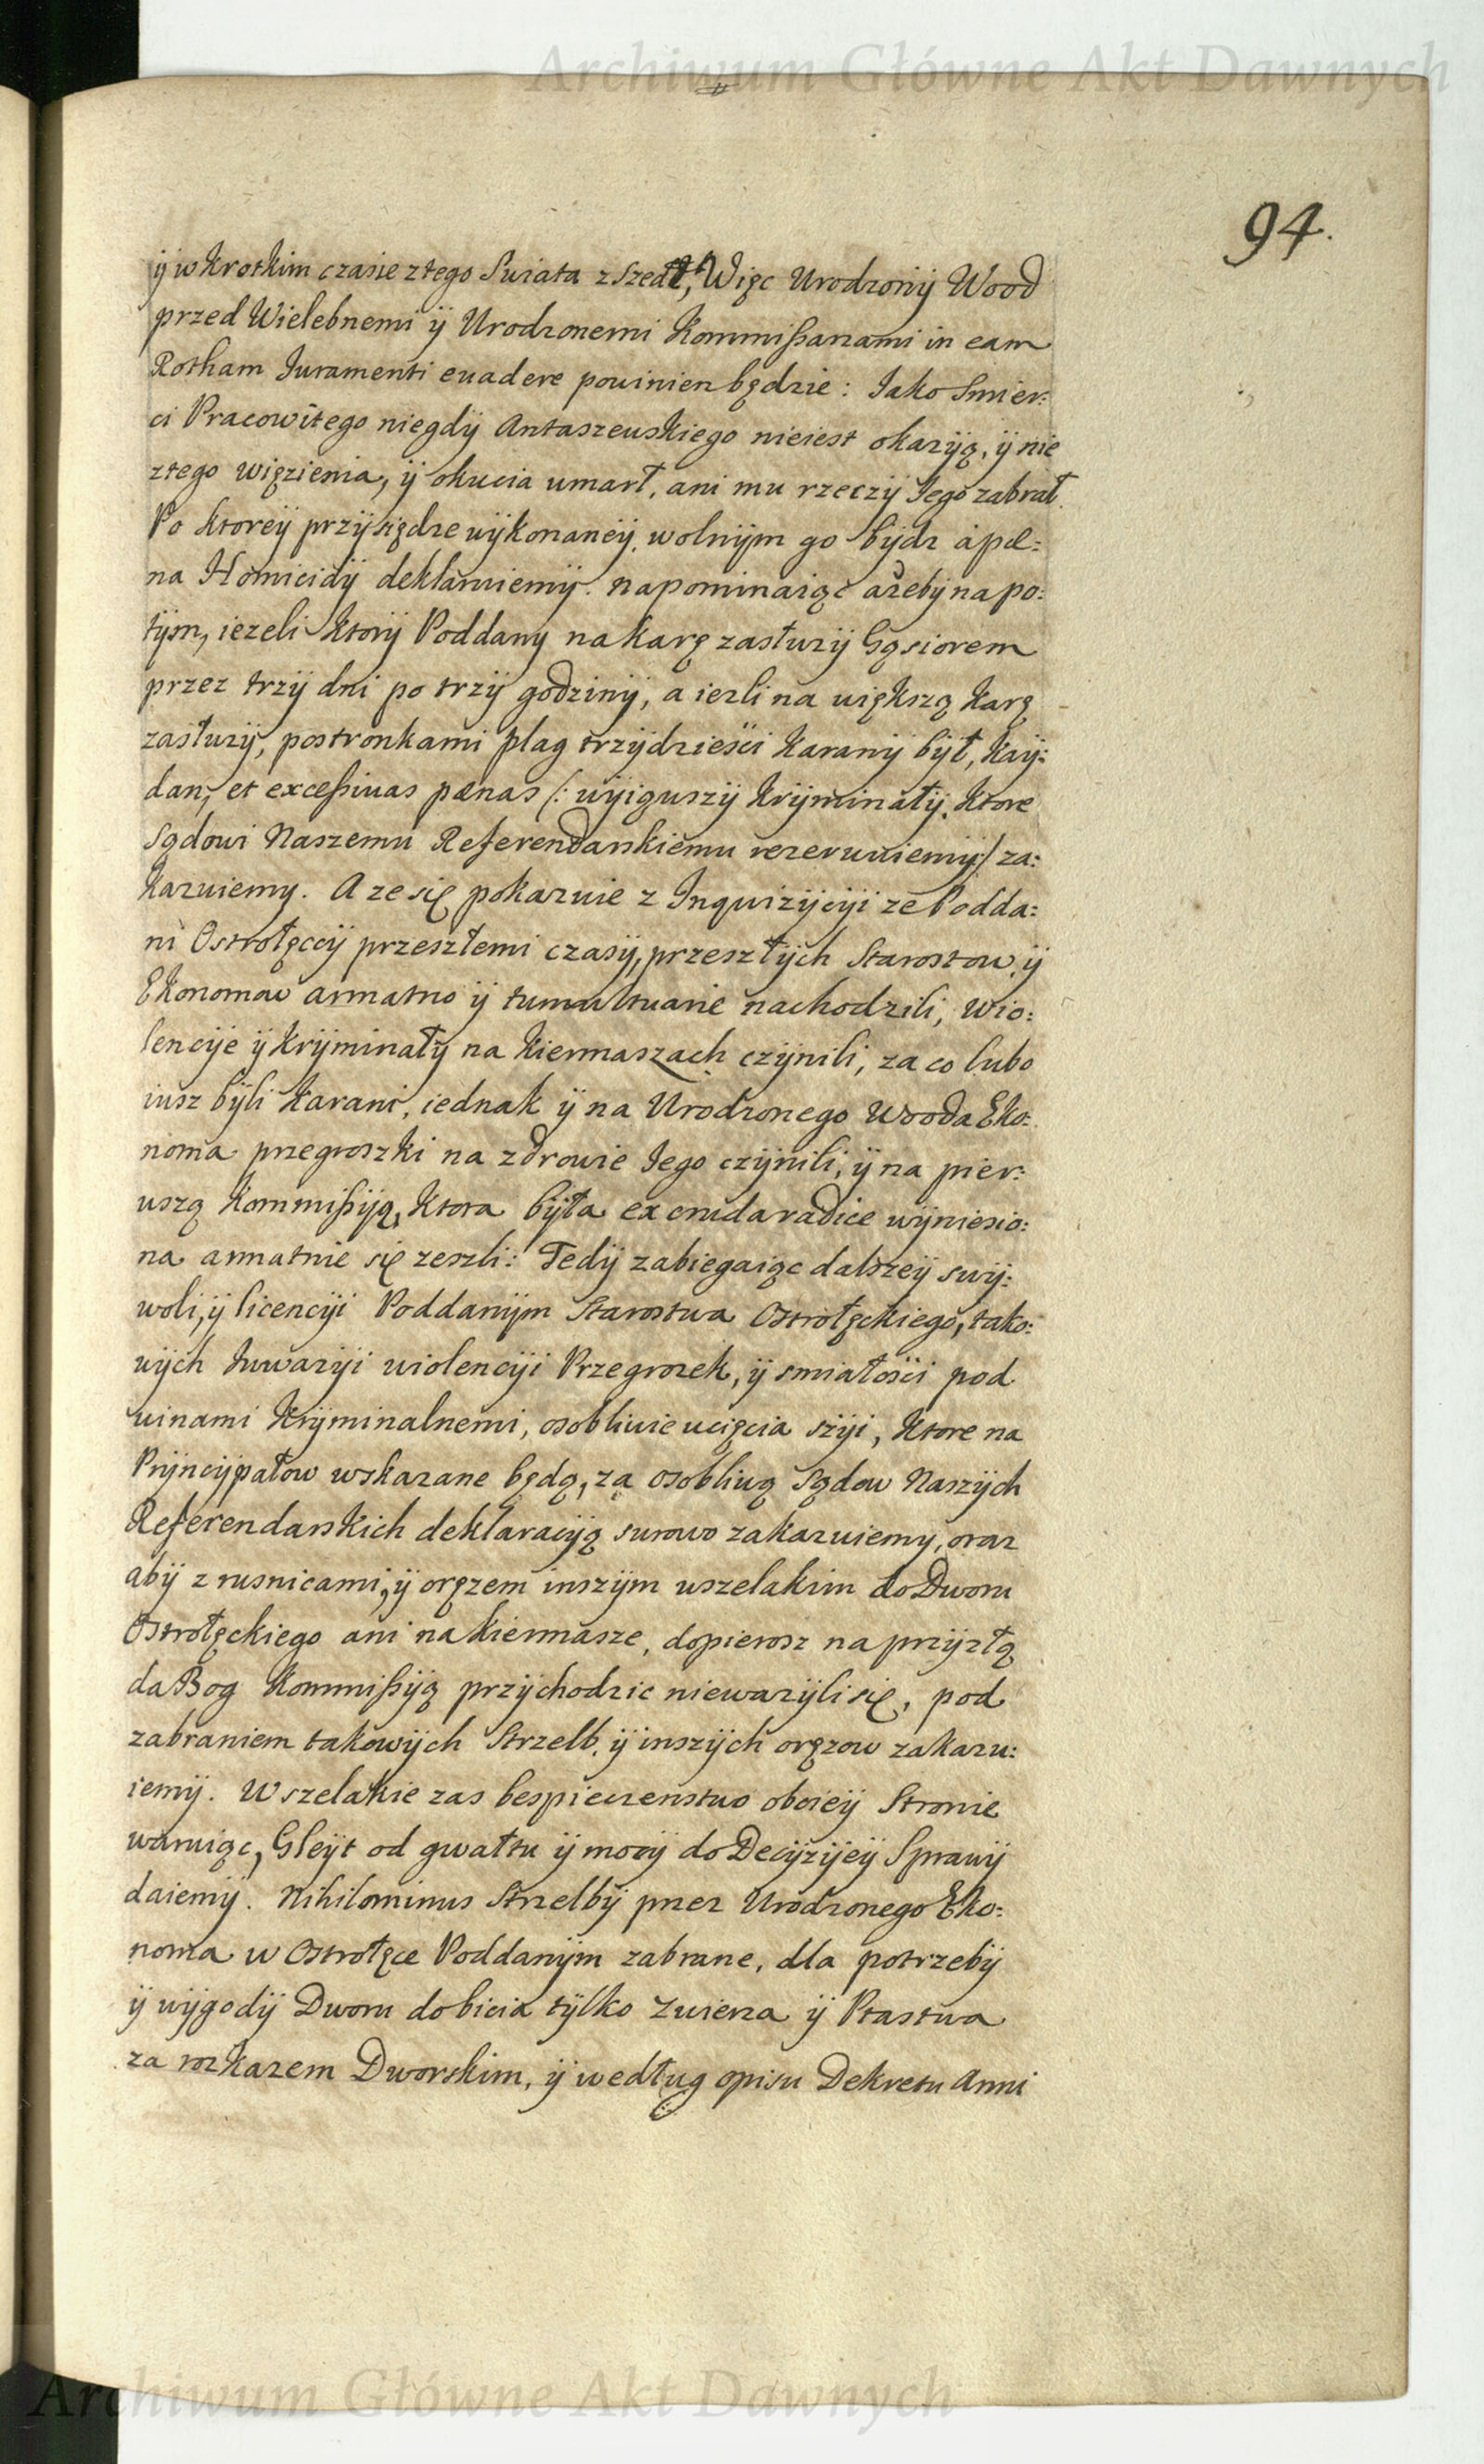 Archiwum Główne Akt Dawnych
94.
ÿ w krotkim czasie z tego Swiata zszedł, Więc Urodzonÿ Wood
przed Wielebnemi ÿ Urodzonemi Kommißarzami in eam
Rotham Juramenti evadere powinien będzie: Jako Smier:
ci Pracowitego niegdÿ Antaszewskiego nieiest okazÿą, ÿ nie
ztego więzienia, ÿ okucia umarł, ani mu rzeczÿ Jego zabrał.
Po ktoreÿ przÿsiędze wÿkonaneÿ, wolnÿm go bÿdz à pæ:
na Homicidÿ deklaruiemÿ. napominaiąc ażebÿ na po:
tÿm, iezeli ktorÿ Poddany na karę zasłuzÿ Gąsiorem
przez trzÿ dni po trzÿ godzinÿ, a iezli na większą karę
zasłuzÿ, postronkami plag trzÿdziesci karanÿ bÿł, Kaÿ:
dan, et exceßivas pœnas /: wÿiąwszÿ krÿminałÿ, ktore
Sądowi Naszemu Referendarskiemu rezerwuiemÿ/ za:
kazuiemy. A ze się pokazuie z Inquizÿcÿi ze Podda:
ni Ostrołęccÿ przeszłemi czasÿ, przeszłÿch Starostow, ÿ
Ekonomow armatno ÿ tumultuarie nachodzili, wio:
lencÿe ÿ krÿminałÿ na kiermaszach czÿnili, za co lubo
iusz bÿli karani, iednak ÿ na Urodzonego Wooda Eko:
noma przegroszki na zdrowie Jego czÿnili, ÿ na pier:
wszą Kommißÿą, ktora bÿła ex cruda radice wÿniesio:
na armatnie się zeszli: Tedÿ zabiegaiąc dalszeÿ swÿ:
woli, ÿ licencÿi Poddanÿm Starostwa Ostrołęckiego, tako:
wÿch inwazÿi wiolencÿi Przegrozek, ÿ smiałosci pod
winami krÿminalnemi, osobliwie ucięcia szÿi, ktore na
Prÿncÿpałow wskazane będą, za osobliwą Sądow Naszÿch
Referendarskich deklaracÿą surowo zakazuiemy, oraz
abÿ z rusnicami, ÿ oręzem inszÿm wszelakim do Dworu
Ostrołęckiego ani na kiermasze, dopierosz na przÿszłą
da Bog Kommißÿą przÿchodzic niewazÿli się, pod
zabraniem takowÿch Strzelb, ÿ inszÿch oręzow zakazu:
iemÿ. Wszelakie zas bespieczenstwo oboieÿ Stronie
waruiąc, Gleÿt od gwałtu ÿ mocÿ do Decÿzÿeÿ Sprawÿ
daiemÿ. Nihilominus Strzelbÿ przez Urodzonego Eko:
noma w Ostrołęce Poddanÿm zabrane, dla potrzebÿ
ÿ wÿgodÿ Dworu do bicia tÿlko Zwierza ÿ Ptastwa
za rozkazem Dworskim, ÿ według opisu Dekretu Anni
Archiwum Główne Akt Dawnych